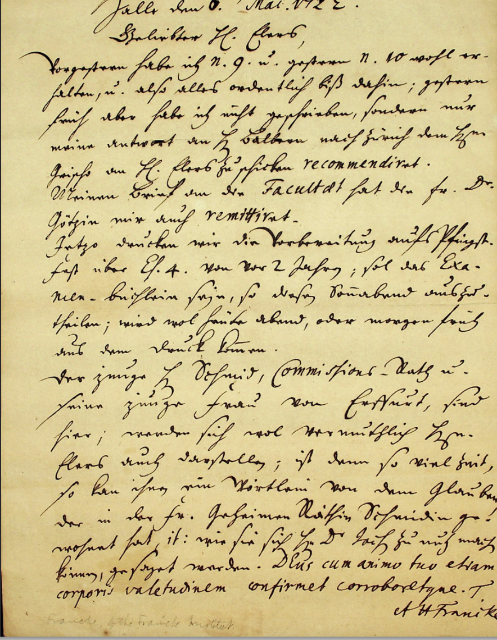 Halle den 6. Mai. 1722.
Geliebter H. Elers,
Vorgestern habe ich n. 9. u. gestern n. 10 wohl er-
halten, u. also alles ordentlich biß dahin; gestern
früh aber habe ich nicht geschrieben, sondern nur
meine antwort an H Balbern nach Zürich dem
an H. Elers zu schicken recommendiret.
Meinen Brief an die Facultät hat die Fr. Dr.
Götzin mir auch remittiret.
Jetzo drucken wir die Vorbereitung aufs Pfingst-
fest über Es. 4. von vor 2 Jahren; sol das Exa-
men-büchlein seyn, so diesen Sonnabend auszu-
theilen; wird wol heute abend, oder morgen früh
aus dem druck kommen.
Der junge H Schmid, Commissions-Rath u.
seine junge Frau von Erffurt, sind
hier; werden sich wol vermuthlich Hn.
Elers auch darstellen; ist denn so viel Zeit,
so kan ihnen ein Wörtlein von dem Glauben,
der in der Fr. Geheimen Räthin Schmidin ge-
wohnet hat it: wie sie sich zu nutz mach
können, gesaget werden. Deus cum animo tuo etiam
corporis valetudinem confirmet corroboretque.
AHFrancke